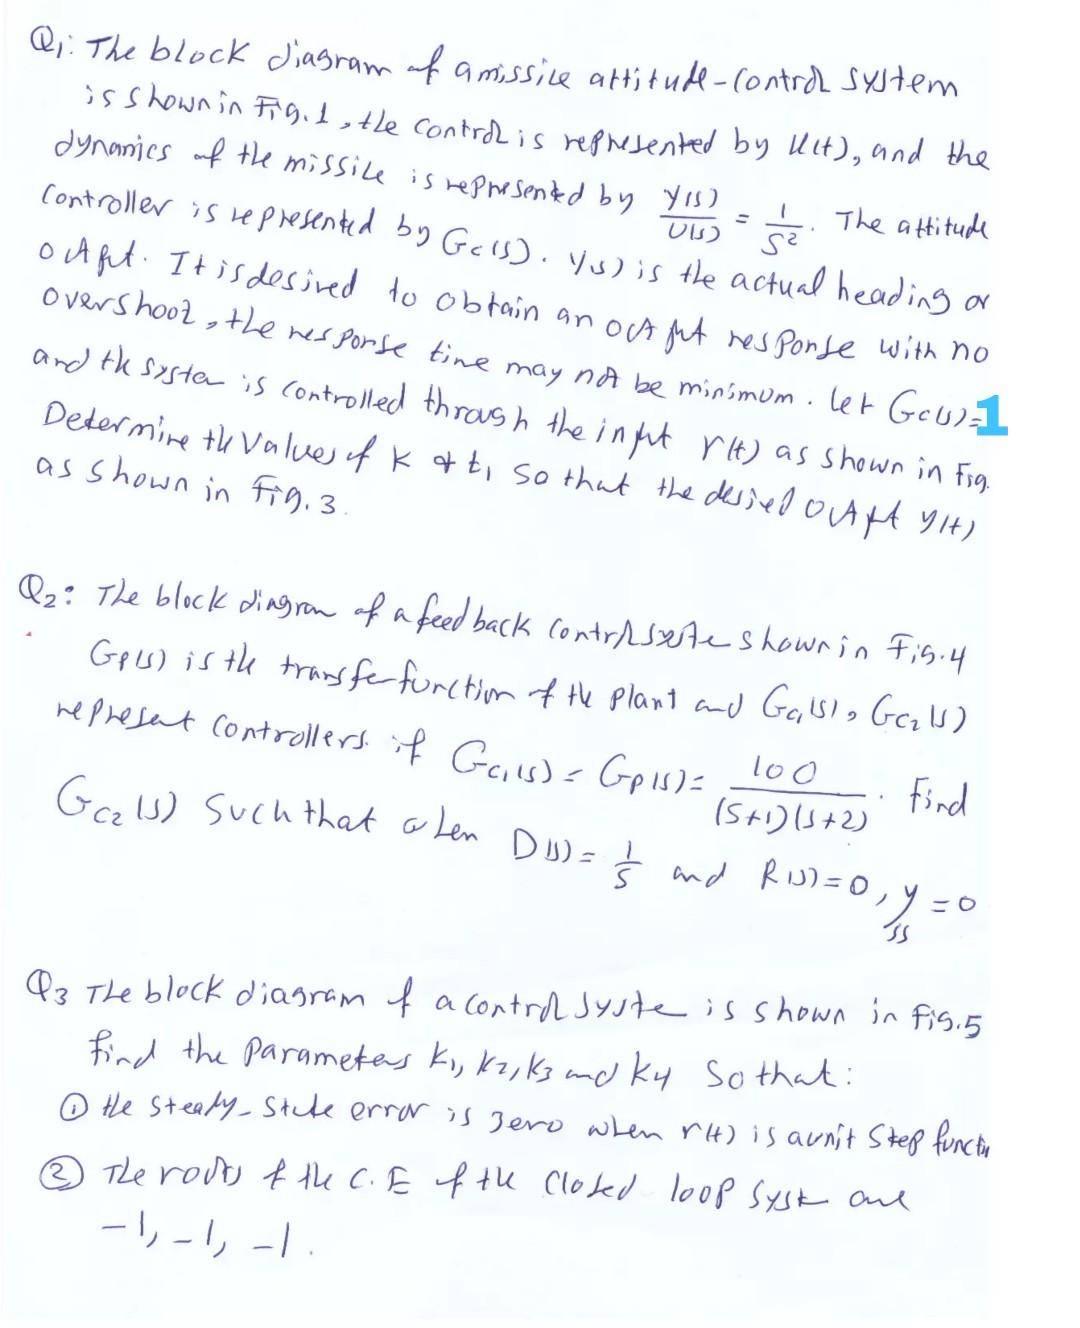 Q1: The block diagram of a missile attitude-control system
is shown in Fig. 1, the control is represented by U(t), and the
dynamics of the missile is represented by Y(s)/U(s) = 1/S². The attitude
Controller is represented by Gc(s). Y(s) is the actual heading or
output. It is desired to obtain an output response with no
overshoot, the response time may not be minimum. let Gc(s)=1
and the system is controlled through the input r(t) as shown in Fig.
Determine the Values of K & t1 so that the desired output y(t)
as shown in Fig. 3.
Q2: The block diagram of a feedback control system shown in Fig.4
Gp(s) is the transfer function of the plant and Gc1(s), Gc2(s)
represent Controllers. if Gc1(s) = Gp(s) = 100/(S+1)(S+2). Find
Gc2(s) Such that when D(s) = 1/S and R(s)=0, yss=0
Q3 The block diagram of a control system is shown in fig.5
find the Parameters K1, K2, K3 and K4 So that:
① the steady-state error is zero when r(t) is a unit step function
② The roots of the C.E of the closed loop system are
-1, -1, -1.